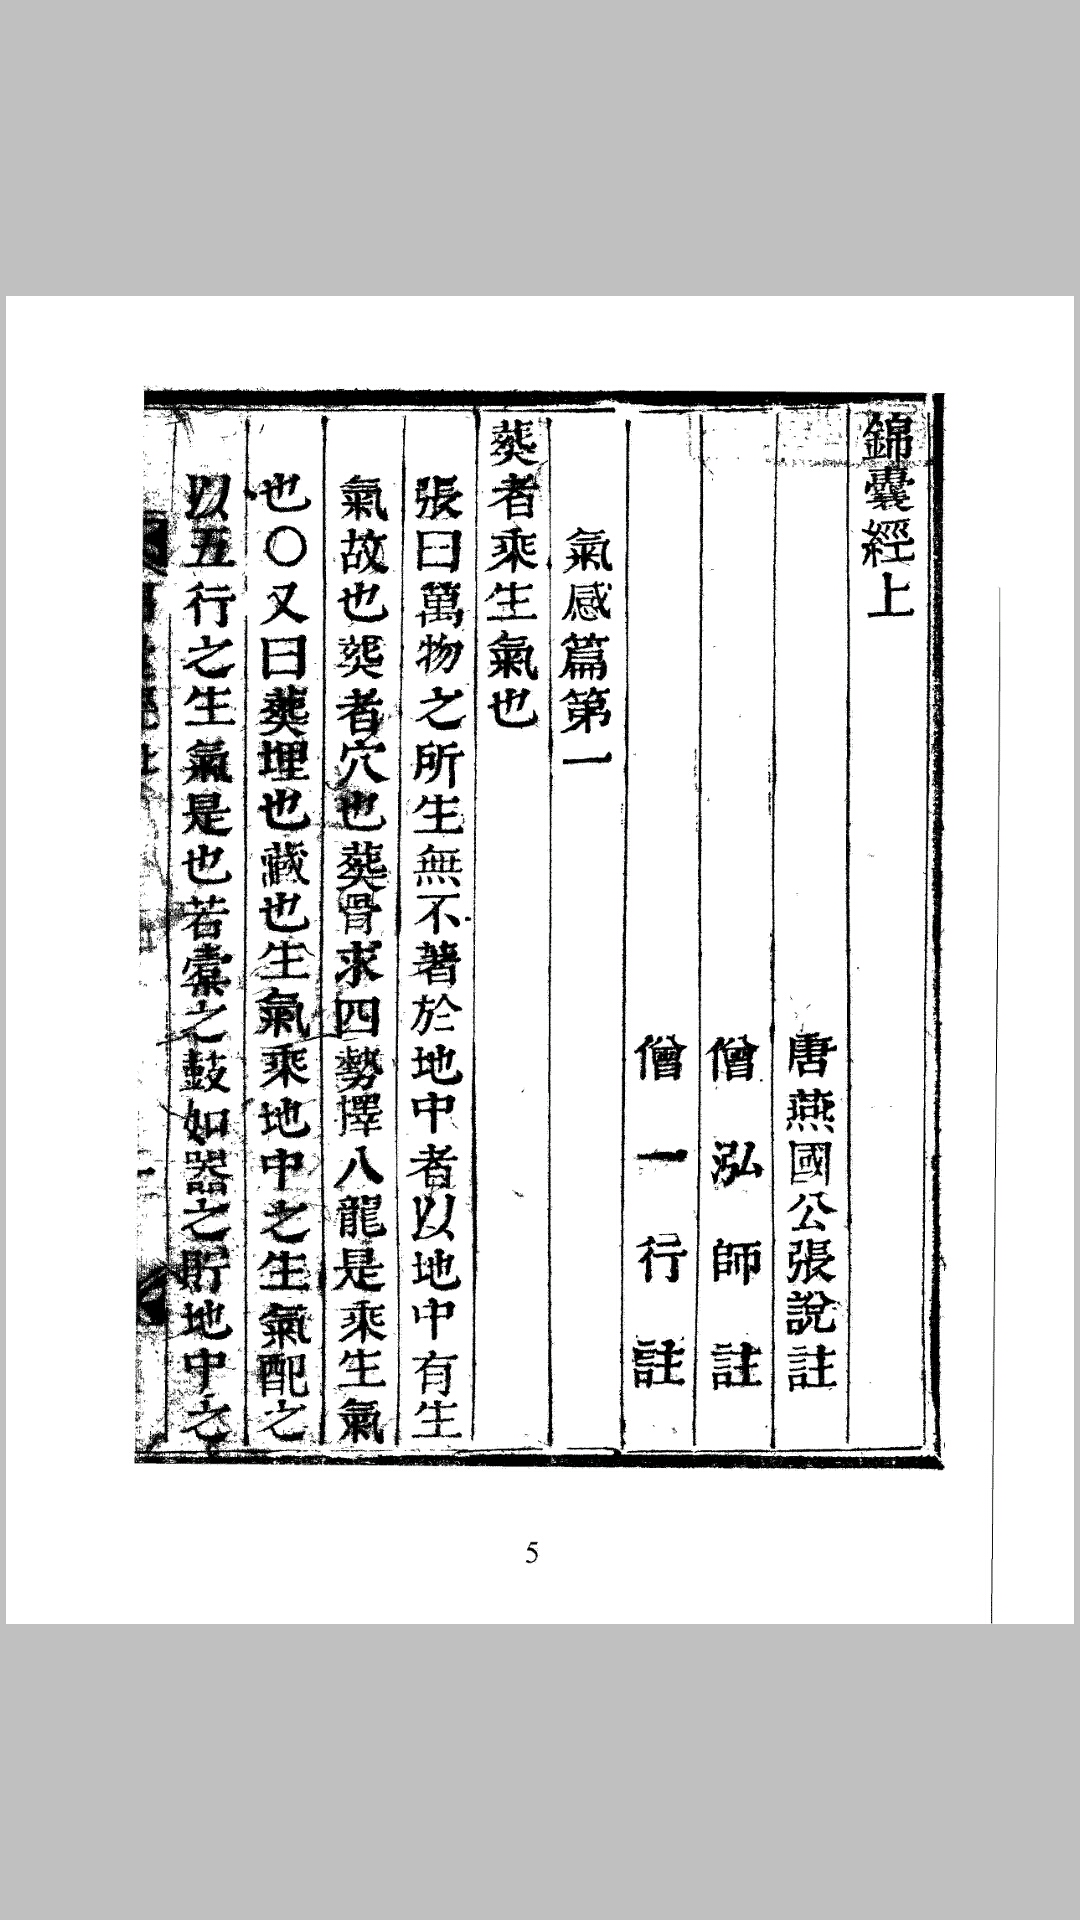 錦囊經上
唐燕國公張說註
僧泓師註
僧一行註
氣感篇第一
葬者乘生氣也
張曰萬物之所生無不著於地中者以地中有生
氣故也葬者穴也葬骨求四勢擇八龍是乘生氣
也〇又曰葬埋也藏也生氣乘地中之生氣配之
以五行之生氣是也若橐之鼓如器之貯地中之
5